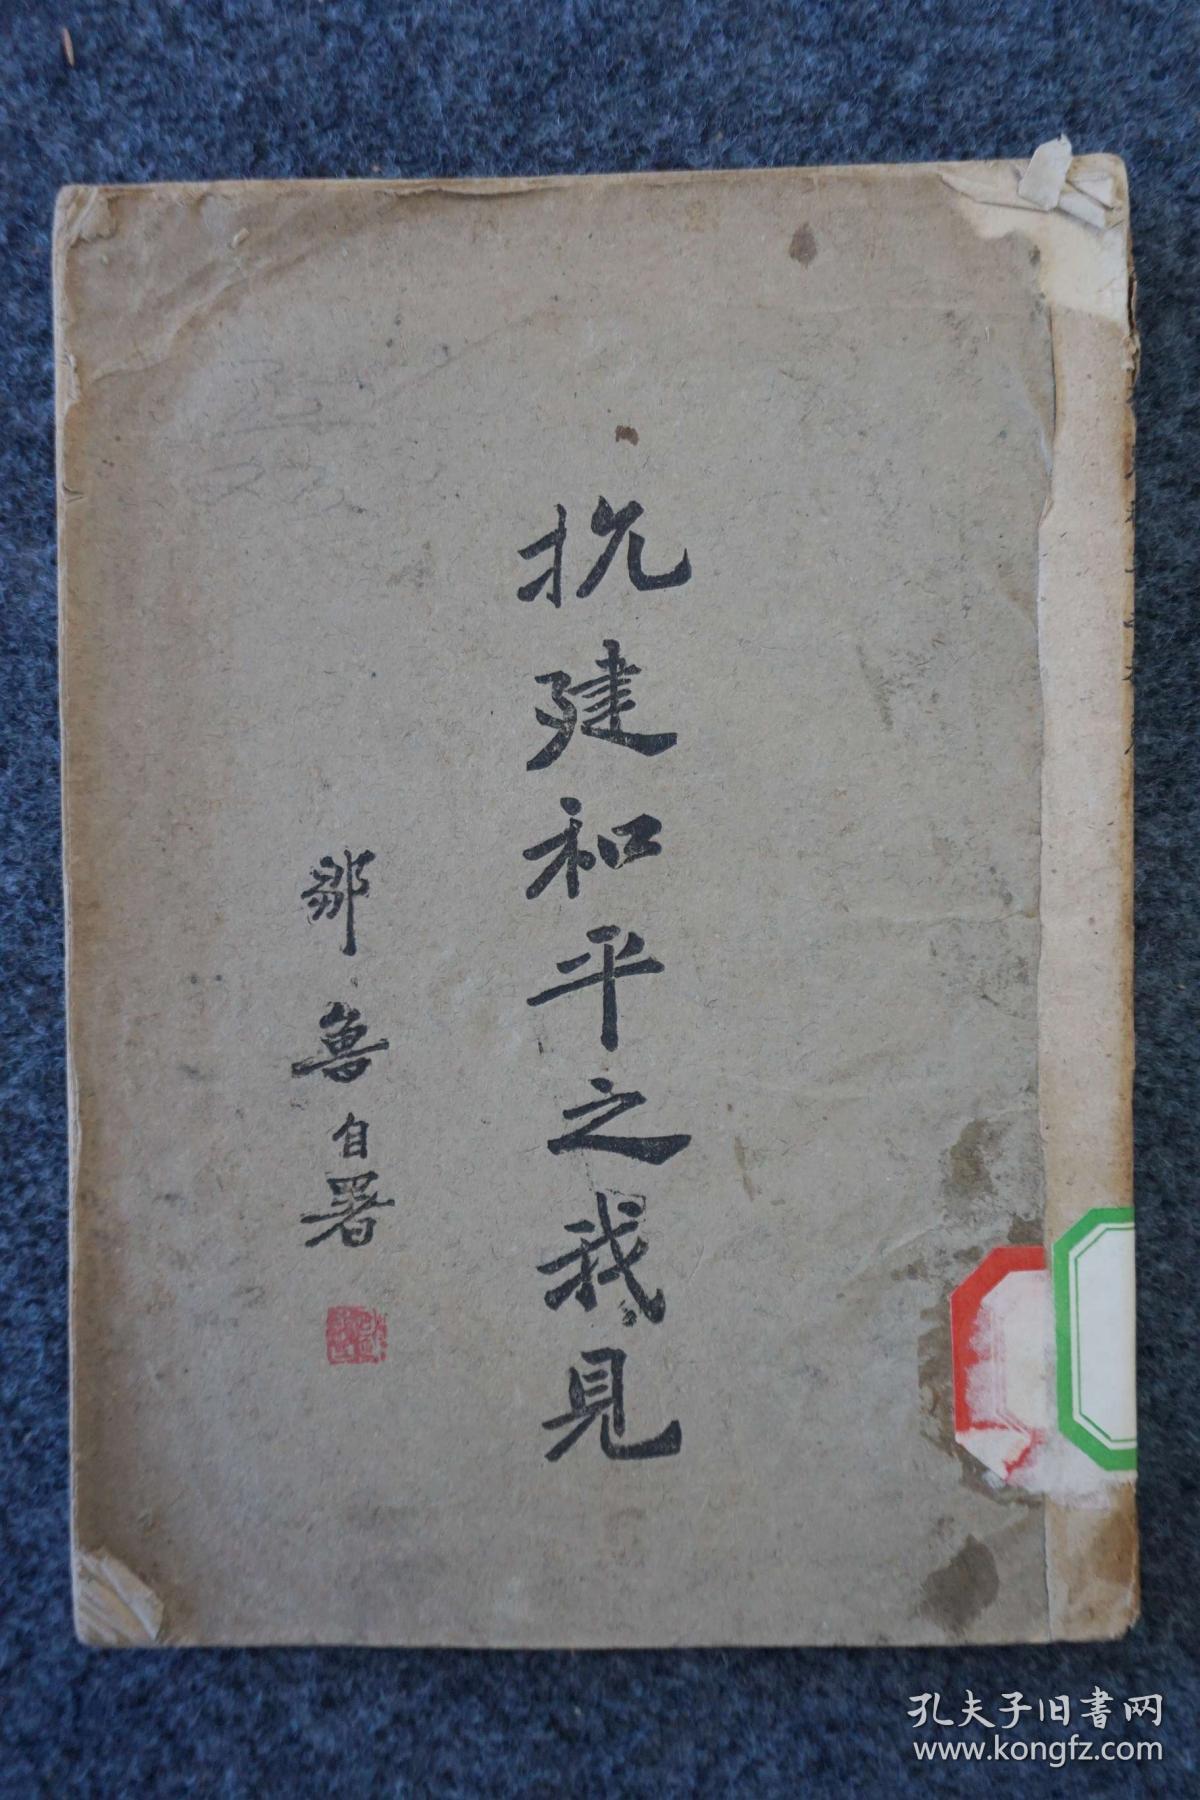 抗建和平之我見
鄒魯自署
孔夫子旧書网
www.kongfz.com